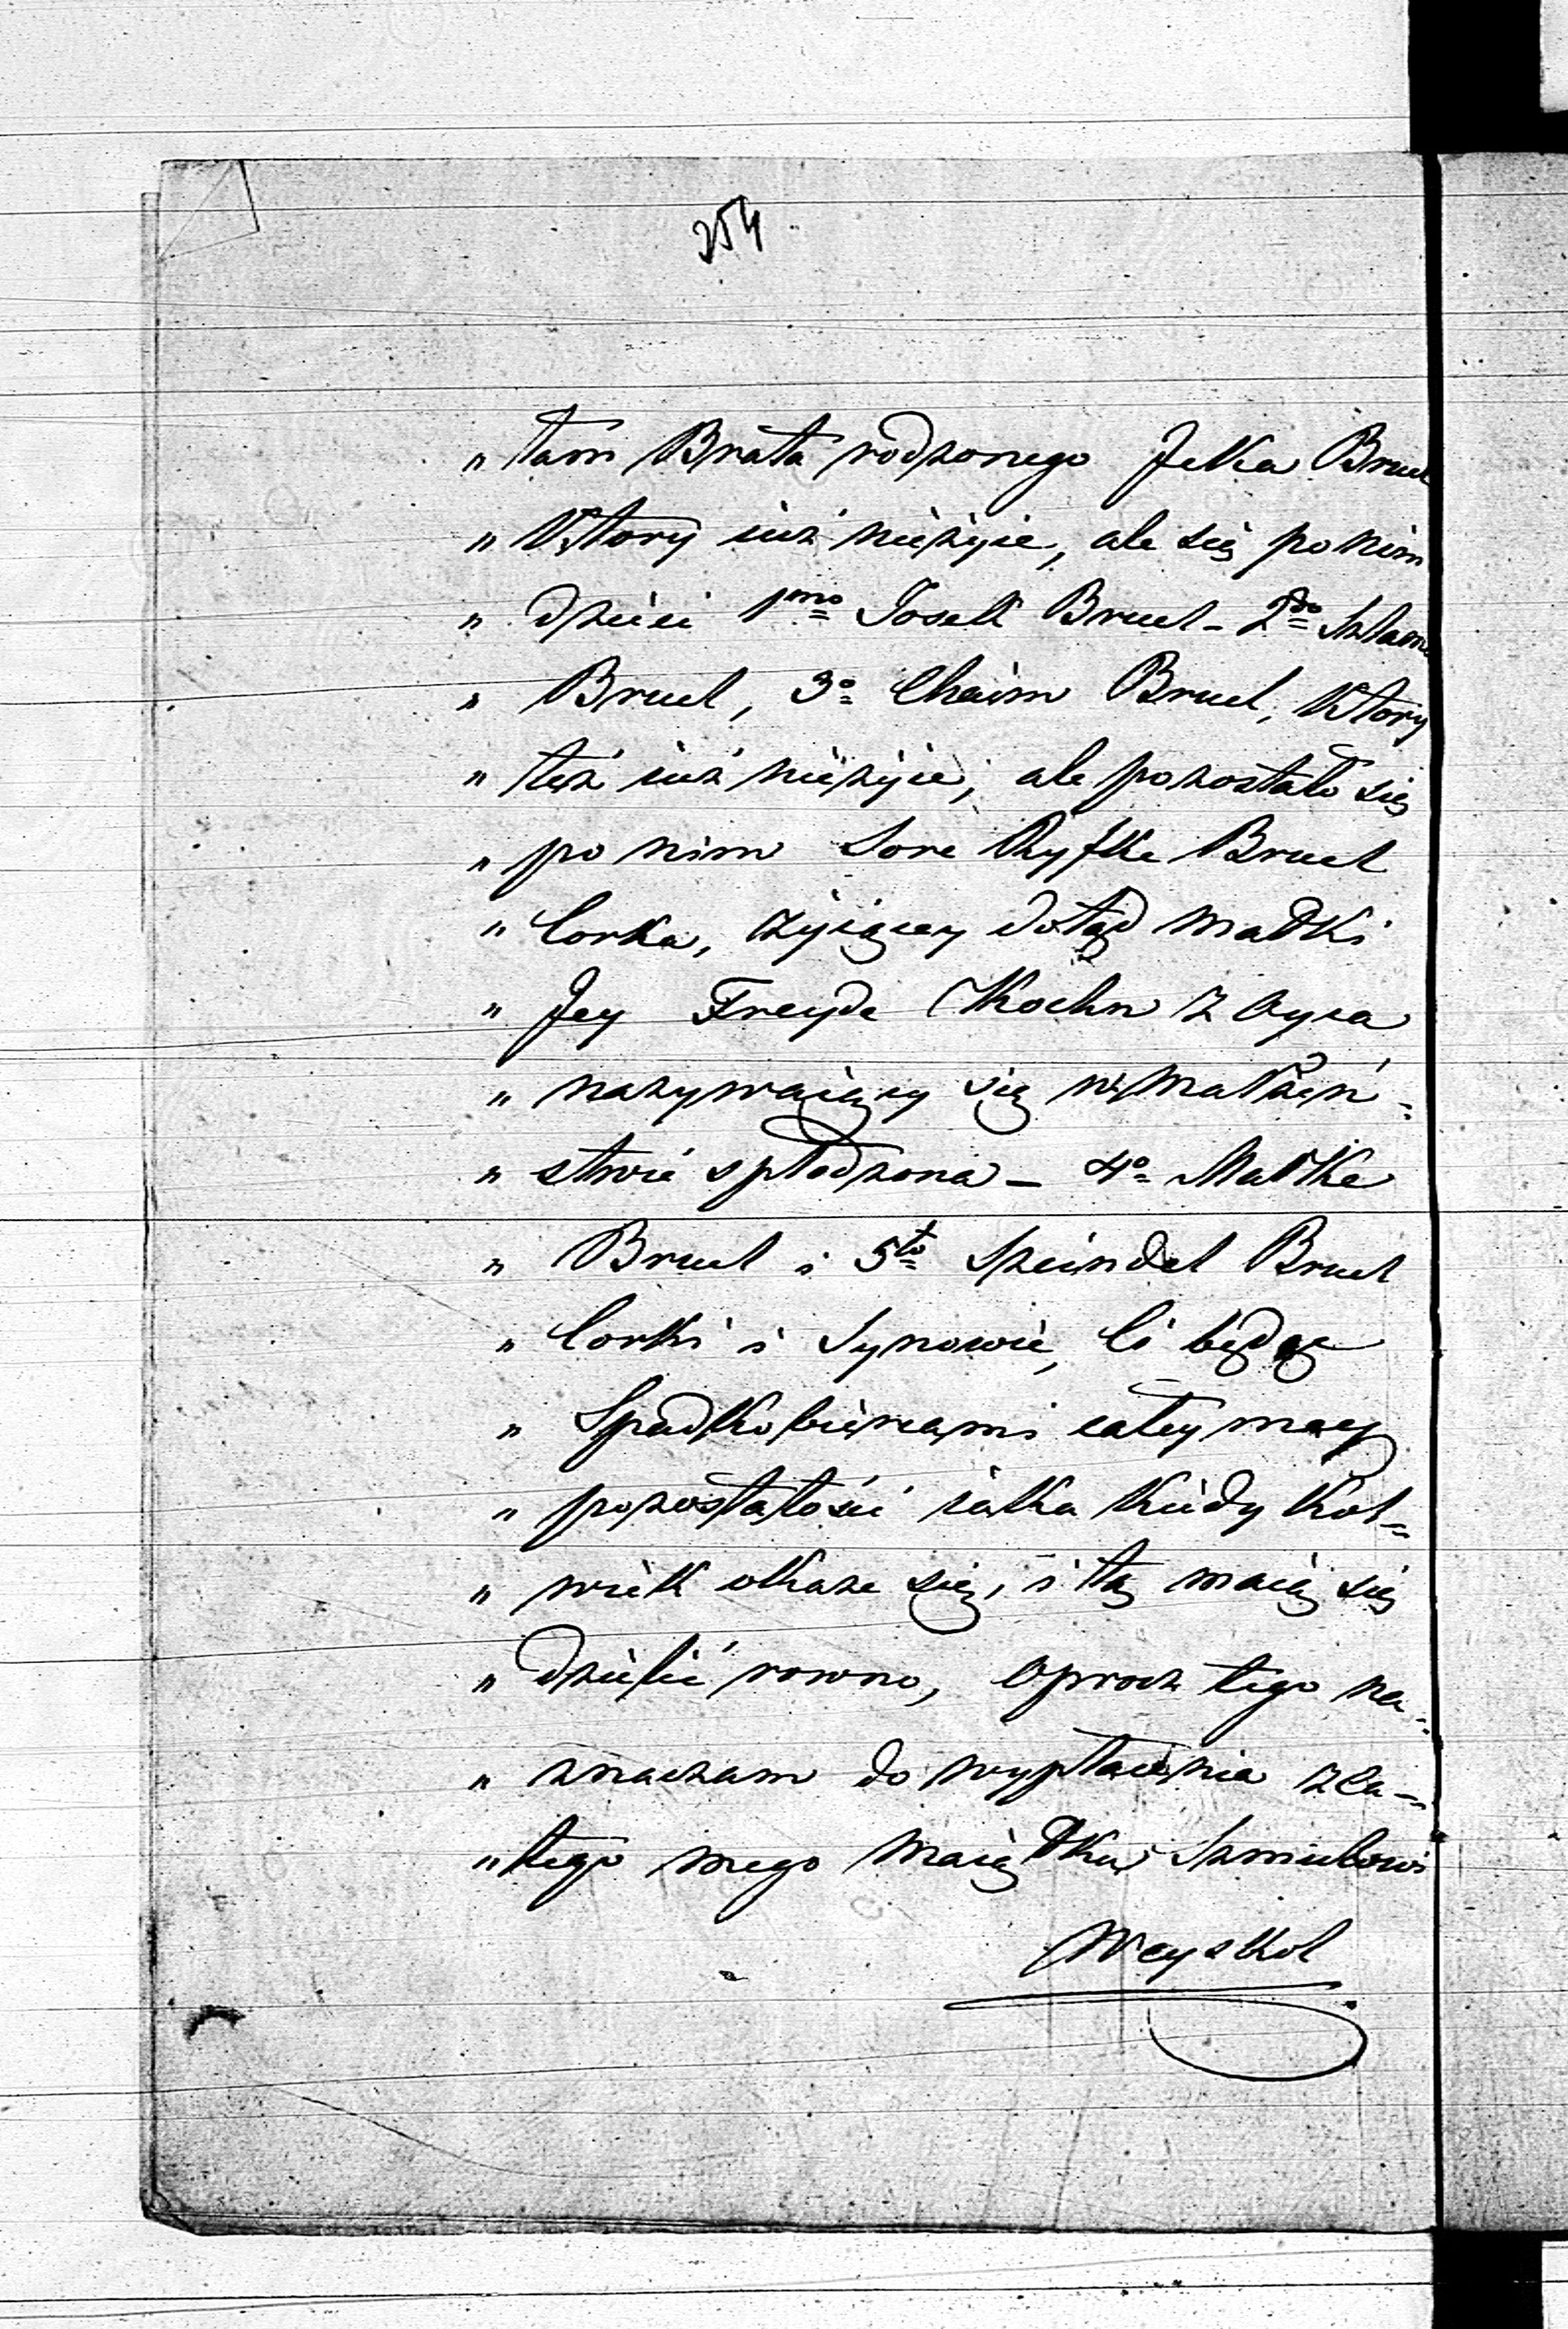 254
„ tam Brata rodzonego Jcka Bruel
„ Ktory iuż nieżyie, ale się po nim
„ dzieci 1mo Josek Bruel – 2do Szlama
„ Bruel, 3o Chaim Bruel, Ktory
„ też iuż nieżyie, ale pozostało się
„ po nim Sore Ryfke Bruel
„ Corka, żyiącey dotąd matki
„ Jey Freyde Koehn z Oyca
„ nazywaiący się w Małżeń-
„ stwie spłodzona – 4o Małke
„ Bruel i 5to Szeindel Bruel
„ Corki i Synowie, Ci będą
„ Spadkobiercami całey mey
„ pozostałości iaka kiedy kol-
„ wiek okaże się, i tą maią się
„ dzielić rowno, oprocz tego na-
„ znaczam do wypłacenia z Ca-
„ łego mego Maiątku Samuelowi
Weyskol